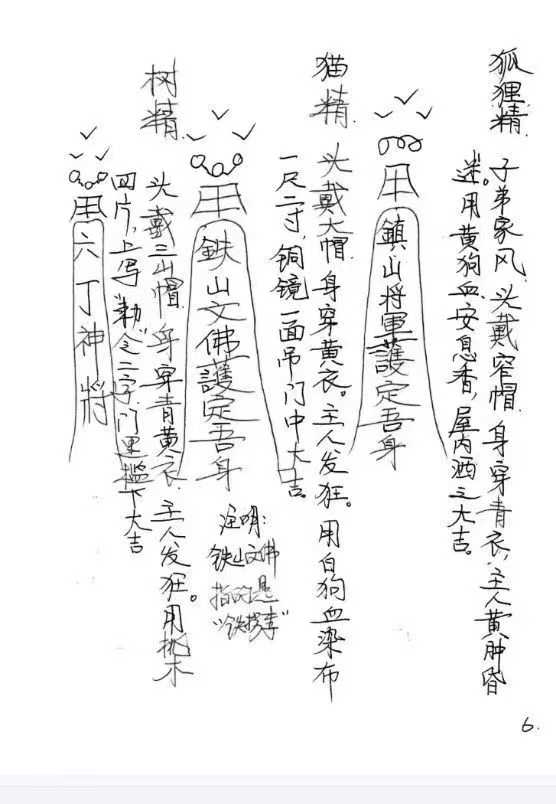 狐狸精
子弟家风 头戴窄帽 身穿青衣，主人黄肿昏
迷。用黄狗血安息香，屋内洒之大吉。
用
鎮山将軍護定吾身
猫精
头戴大帽 身穿黄衣。主人发狂。用白狗血染布
一尺二寸，铜镜一面吊门中大吉
用
鉄山文佛護定吾身
注明：
铁山文佛
指的是
“铁拐李”
树精
头戴三山帽 身穿青黄衣 主人发狂。用桃木
四片，上写“勅”令二字，门里槛下大吉
用
六丁神将
6.